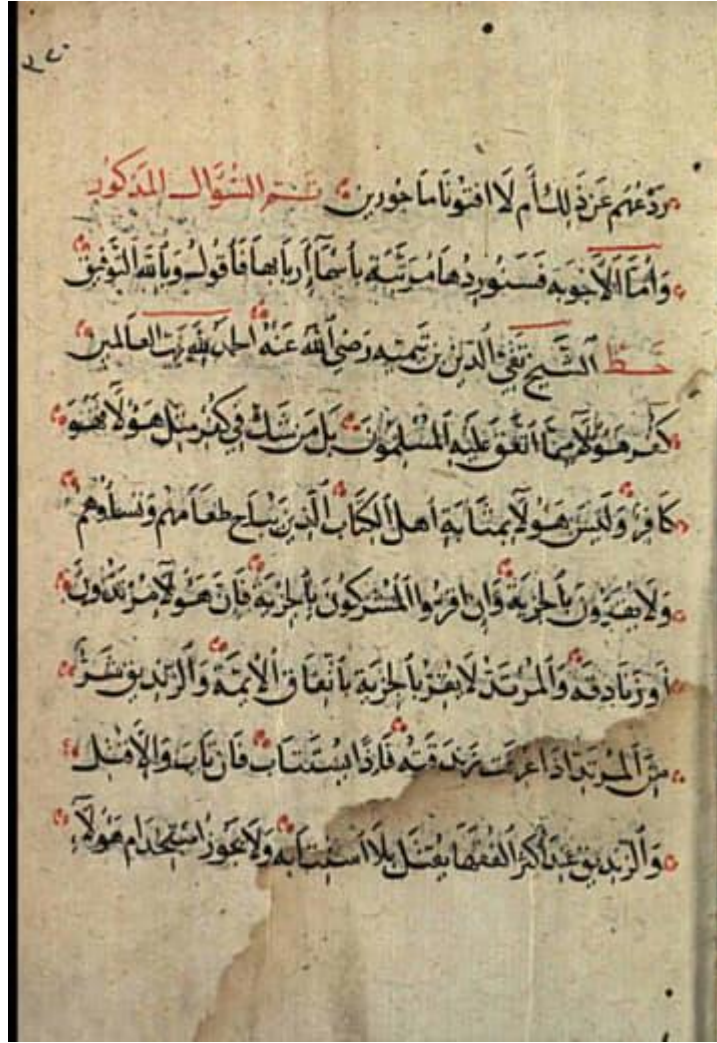 ٢٧٠
ردعهم عن ذلك أم لا افتونا ماجورين تم السؤال المذكور
وأما الأجوبة فسنوردها مرتبة بأسماء أربابها فأقول وبالله التوفيق
خط الشيخ تقي الدين بن تيميه رضي الله عنه الحمد لله رب العالمين
كفر هؤلاء مما اتفق عليه المسلمون بل من شك في كفر مثل هؤلاء فهو
كافر وليس هؤلاء بمثابة أهل الكتاب الذين يباح طعامهم ونساؤهم
ولا يقرون بالجزية وان اقروا المشركون بالجزية فان هؤلاء مرتدون
أو زنادقه والمرتد لا يقر بالجزية باتفاق الأئمة والزنديق شر
من المرتد اذا عرفت زندقته فلذا يستتاب فان تاب والا قتل
والزنديق عند أكثر الفقها يقتل بلا استتابه ولا يجوز استخدام هؤلاء